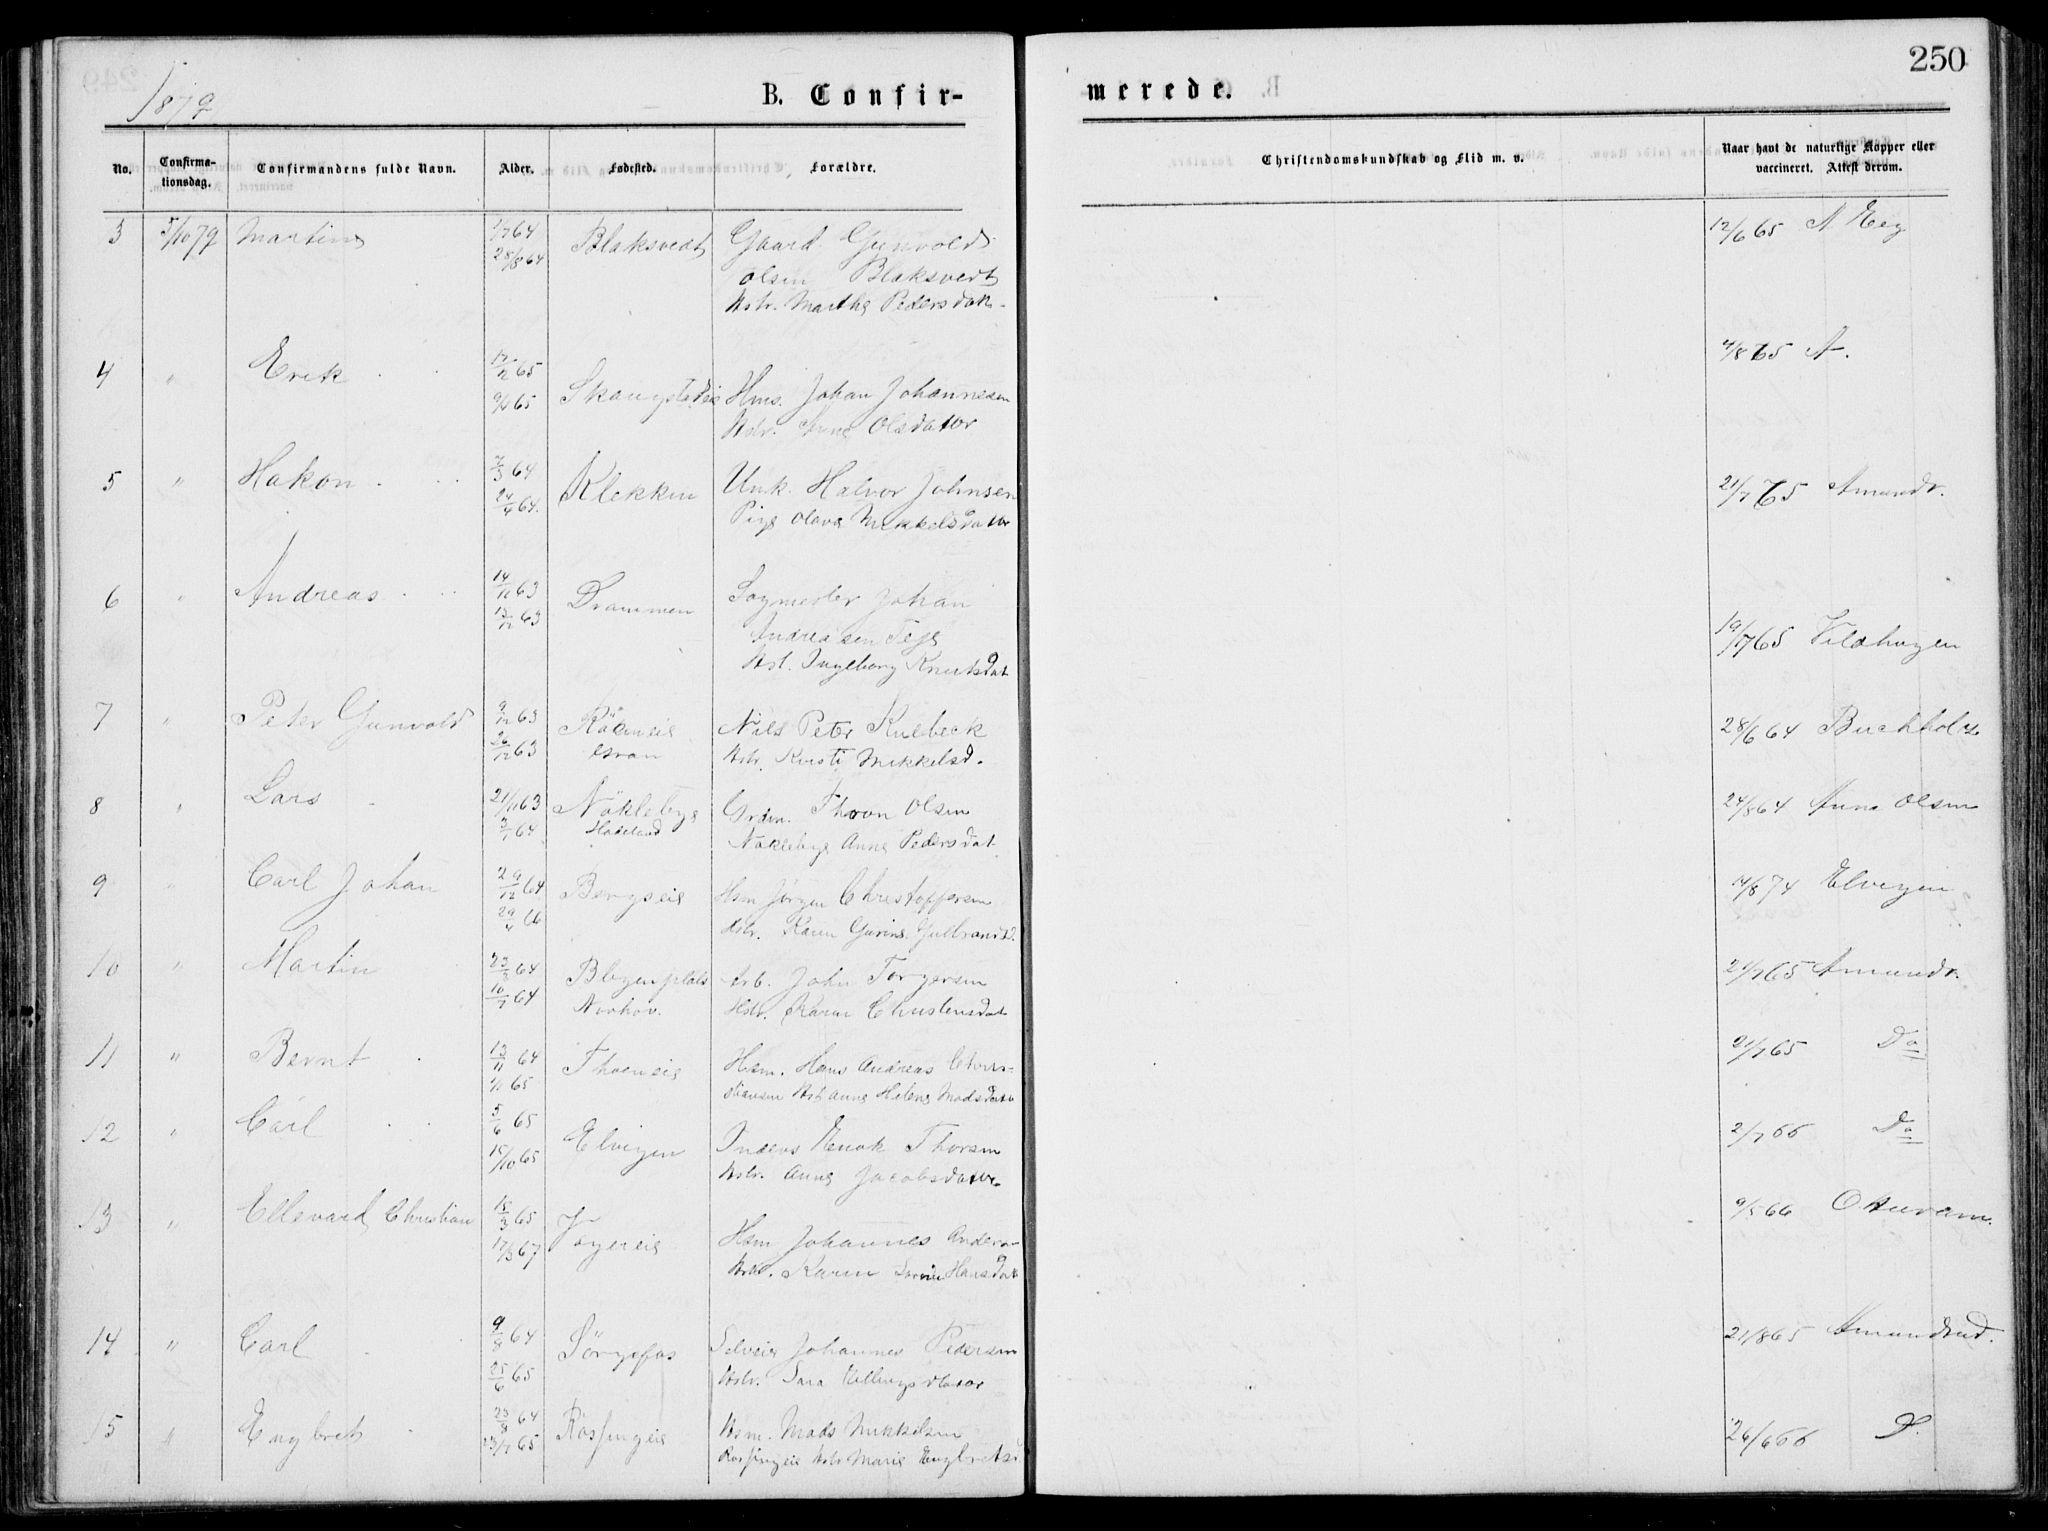 250
1879
B. Confir-
merede.
No.
Confirma-
tionsdag.
Confirmandens fulde Navn.
Alder.
Fødested.
Forældre.
Christendomskundskab og Flid m. v.
Naar havt de naturlige Kopper eller
vaccineret. Attest derom.
3 5/10 79 Martin 64 Blaksvedt Gaard Gunvold 12/6 65 N Eeg
28/8 64 Olsen Blaksvedt
Hstr. Marthe Pedersdatr.
4 " Erik 17/2 65 4/8 65 A.
9/4 65 Hms. Johan Johannesen
Hstr. Anne Olsdatter
5 " Hakon 7/3 64 Klekken Unk. Halvor Johnsen 21/7 65 Amundr.
24/4 64. Pige Olava Mikkelsdatter
6 " Andreas 14/11 63 Drammen Sagmester Johan
13/12 63 Andreasen Teje 19/7 65 Vildhagen
Hst. Ingeborg Knutsdat
7 " Peter Gunvold 9/12 63 Nils Peter Kulbeck 28/6 64 Buchholz
26/12 63 Gran Hstr. Kirsti Mikkelsd.
8 " Lars 21/11 63 Nökleby Grdm. Thron Olsen 24/8 64 Anne Olsen
3/1 64 Hadeland Nökleby Anne Pedersdat
9 " Carl Johan 29/12 64 Bergseie Hsm Jörgen Christoffersen 14/8 74 Elvigen
29/4 66 Hstr. Karen Gurine Gulbrandsd.
10 " Martin 23/3 64 Arb. John Torgersen 21/7 65 Amundr.
10/7 64 Norhov. Hstr. Karen Christensdat
11 " Bernt 13/11 64 Thoeneie Hsm. Hans Andreas Chris- 21/7 65 Do
1/1 65 stiansen Hst Anne Helene Madsdatt
12 " Carl 5/6 65 Elvigen Inders Enok Thorsen 2/7 66 Do
15/10 65 Hstr. Anne Jacobsdatter
13 " Ellevard Christian 15/3 65 Hsm Johannes Anders 9/5 66
17/3 67 Hstr. Karen Hansdat
14 " Carl 9/8 64 Sörgefos Selveie Johannes Pedersen 21/8 65 Amundrud.
25/6 65 Hstr. Sara Ellingsdatter
15 " Engbret 23/8 64 Rösfingeie Hsm. Mads Mikkelsen 26/6 66 D.
23/7 65 Rösfingeie Hstr Marie Engbretsd.